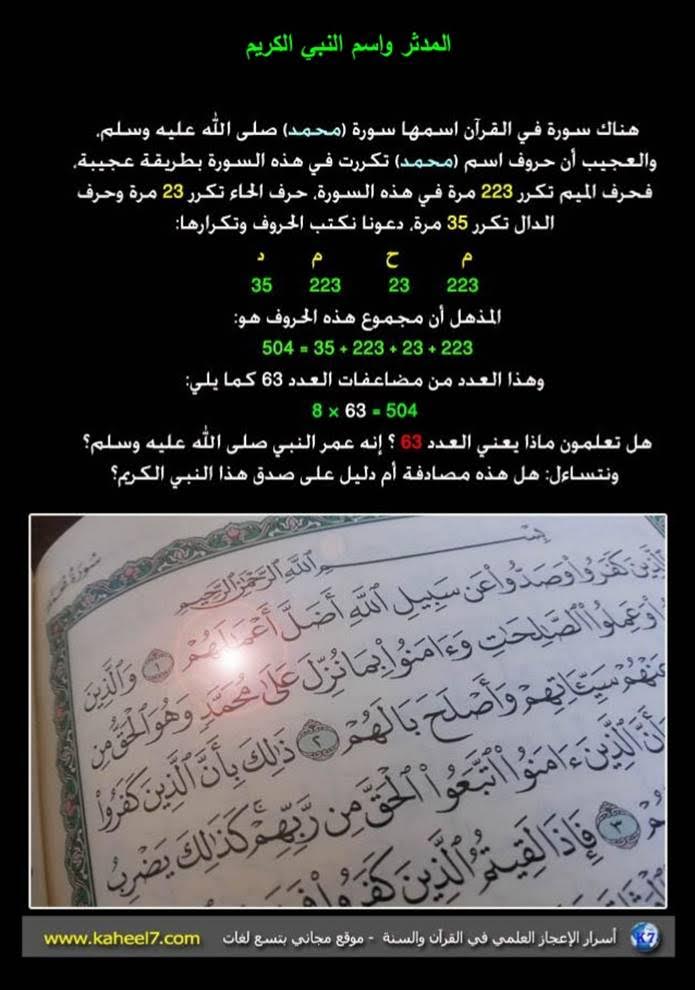 المدثر واسم النبي الكريم
هناك سورة في القرآن اسمها سورة (محمد) صلى الله عليه وسلم.
والعجيب أن حروف اسم (محمد) تكررت في هذه السورة بطريقة عجيبة.
فحرف الميم تكرر 223 مرة في هذه السورة. حرف الحاء تكرر 23 مرة وحرف
الدال تكرر 35 مرة. دعونا نكتب الحروف وتكرارها:
م ح م د
223 23 223 35
المذهل أن مجموع هذه الحروف هو:
504 = 35 + 223 + 23 + 223
وهذا العدد من مضاعفات العدد 63 كما يلي:
8 × 63 = 504
هل تعلمون ماذا يعني العدد 63 ؟ إنه عمر النبي صلى الله عليه وسلم؟
ونتساءل: هل هذه مصادفة أم دليل على صدق هذا النبي الكريم؟
بِسْمِ ٱللَّهِ ٱلرَّحْمَٰنِ ٱلرَّحِيمِ
ٱلَّذِينَ كَفَرُوا۟ وَصَدُّوا۟ عَن سَبِيلِ ٱللَّهِ أَضَلَّ أَعْمَٰلَهُمْ ١ وَٱلَّذِينَ
وَعَمِلُوا۟ ٱلصَّٰلِحَٰتِ وَءَامَنُوا۟ بِمَا نُزِّلَ عَلَىٰ مُحَمَّدٍ وَهُوَ ٱلْحَقُّ مِن
عَنْهُمْ سَيِّـَٔاتِهِمْ وَأَصْلَحَ بَالَهُمْ ٢ ذَٰلِكَ بِأَنَّ ٱلَّذِينَ كَفَرُوا۟
وَأَنَّ ٱلَّذِينَ ءَامَنُوا۟ ٱتَّبَعُوا۟ ٱلْحَقَّ مِن رَّبِّهِمْ ۚ كَذَٰلِكَ يَضْرِبُ
٣ فَإِذَا لَقِيتُمُ ٱلَّذِينَ كَفَرُوا۟
أسرار الإعجاز العلمي في القرآن والسنة - موقع مجاني بتسع لغات www.kaheel7.com
K7